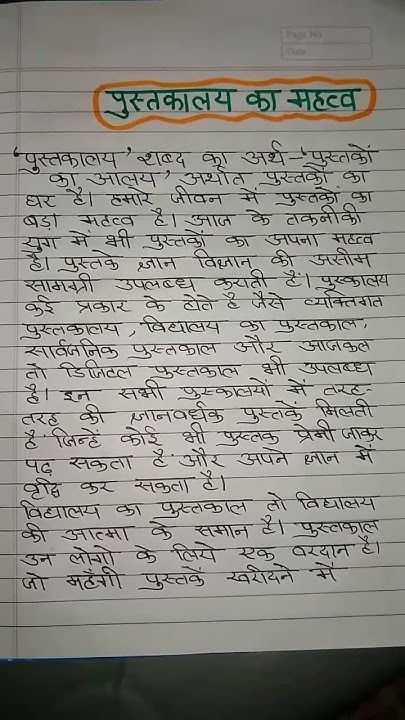 Page No.
Date
पुस्तकालय का महत्व
'पुस्तकालय' शब्द का अर्थ - 'पुस्तकों
का आलय' अर्थात पुस्तकों का
घर है। हमारे जीवन में पुस्तकों का
बड़ा महत्व है। आज के तकनीकी
युग में भी पुस्तकों का अपना महत्व
है। पुस्तके ज्ञान विज्ञान की असीम
सामग्री उपलब्ध कराती हैं। पुस्कालय
कई प्रकार के होते है जैसे व्यक्तिगत
पुस्तकालय, विद्यालय का पुस्तकाल,
सार्वजनिक पुस्तकाल और आजकल
तो डिजिटल पुस्तकाल भी उपलब्ध
है। इन सभी पुस्कालयों में तरह-
तरह की ज्ञानवर्धक पुस्तकें मिलती
है जिन्हे कोई भी पुस्तक प्रेमी जाकर
पढ़ सकता है और अपने ज्ञान में
वृद्वि कर सकता है।
विद्यालय का पुस्तकाल तो विद्यालय
की आत्मा के समान है। पुस्तकाल
उन लोगो के लिये एक वरदान है।
जो महँगी पुस्तकें खरीदने में